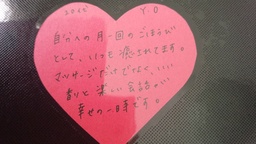 2022 Y.O
自分への月一回のごほうび
として、いつも癒されてます。
マッサージだけでなく、いい
香りと楽しい会話が
幸せの一日です。